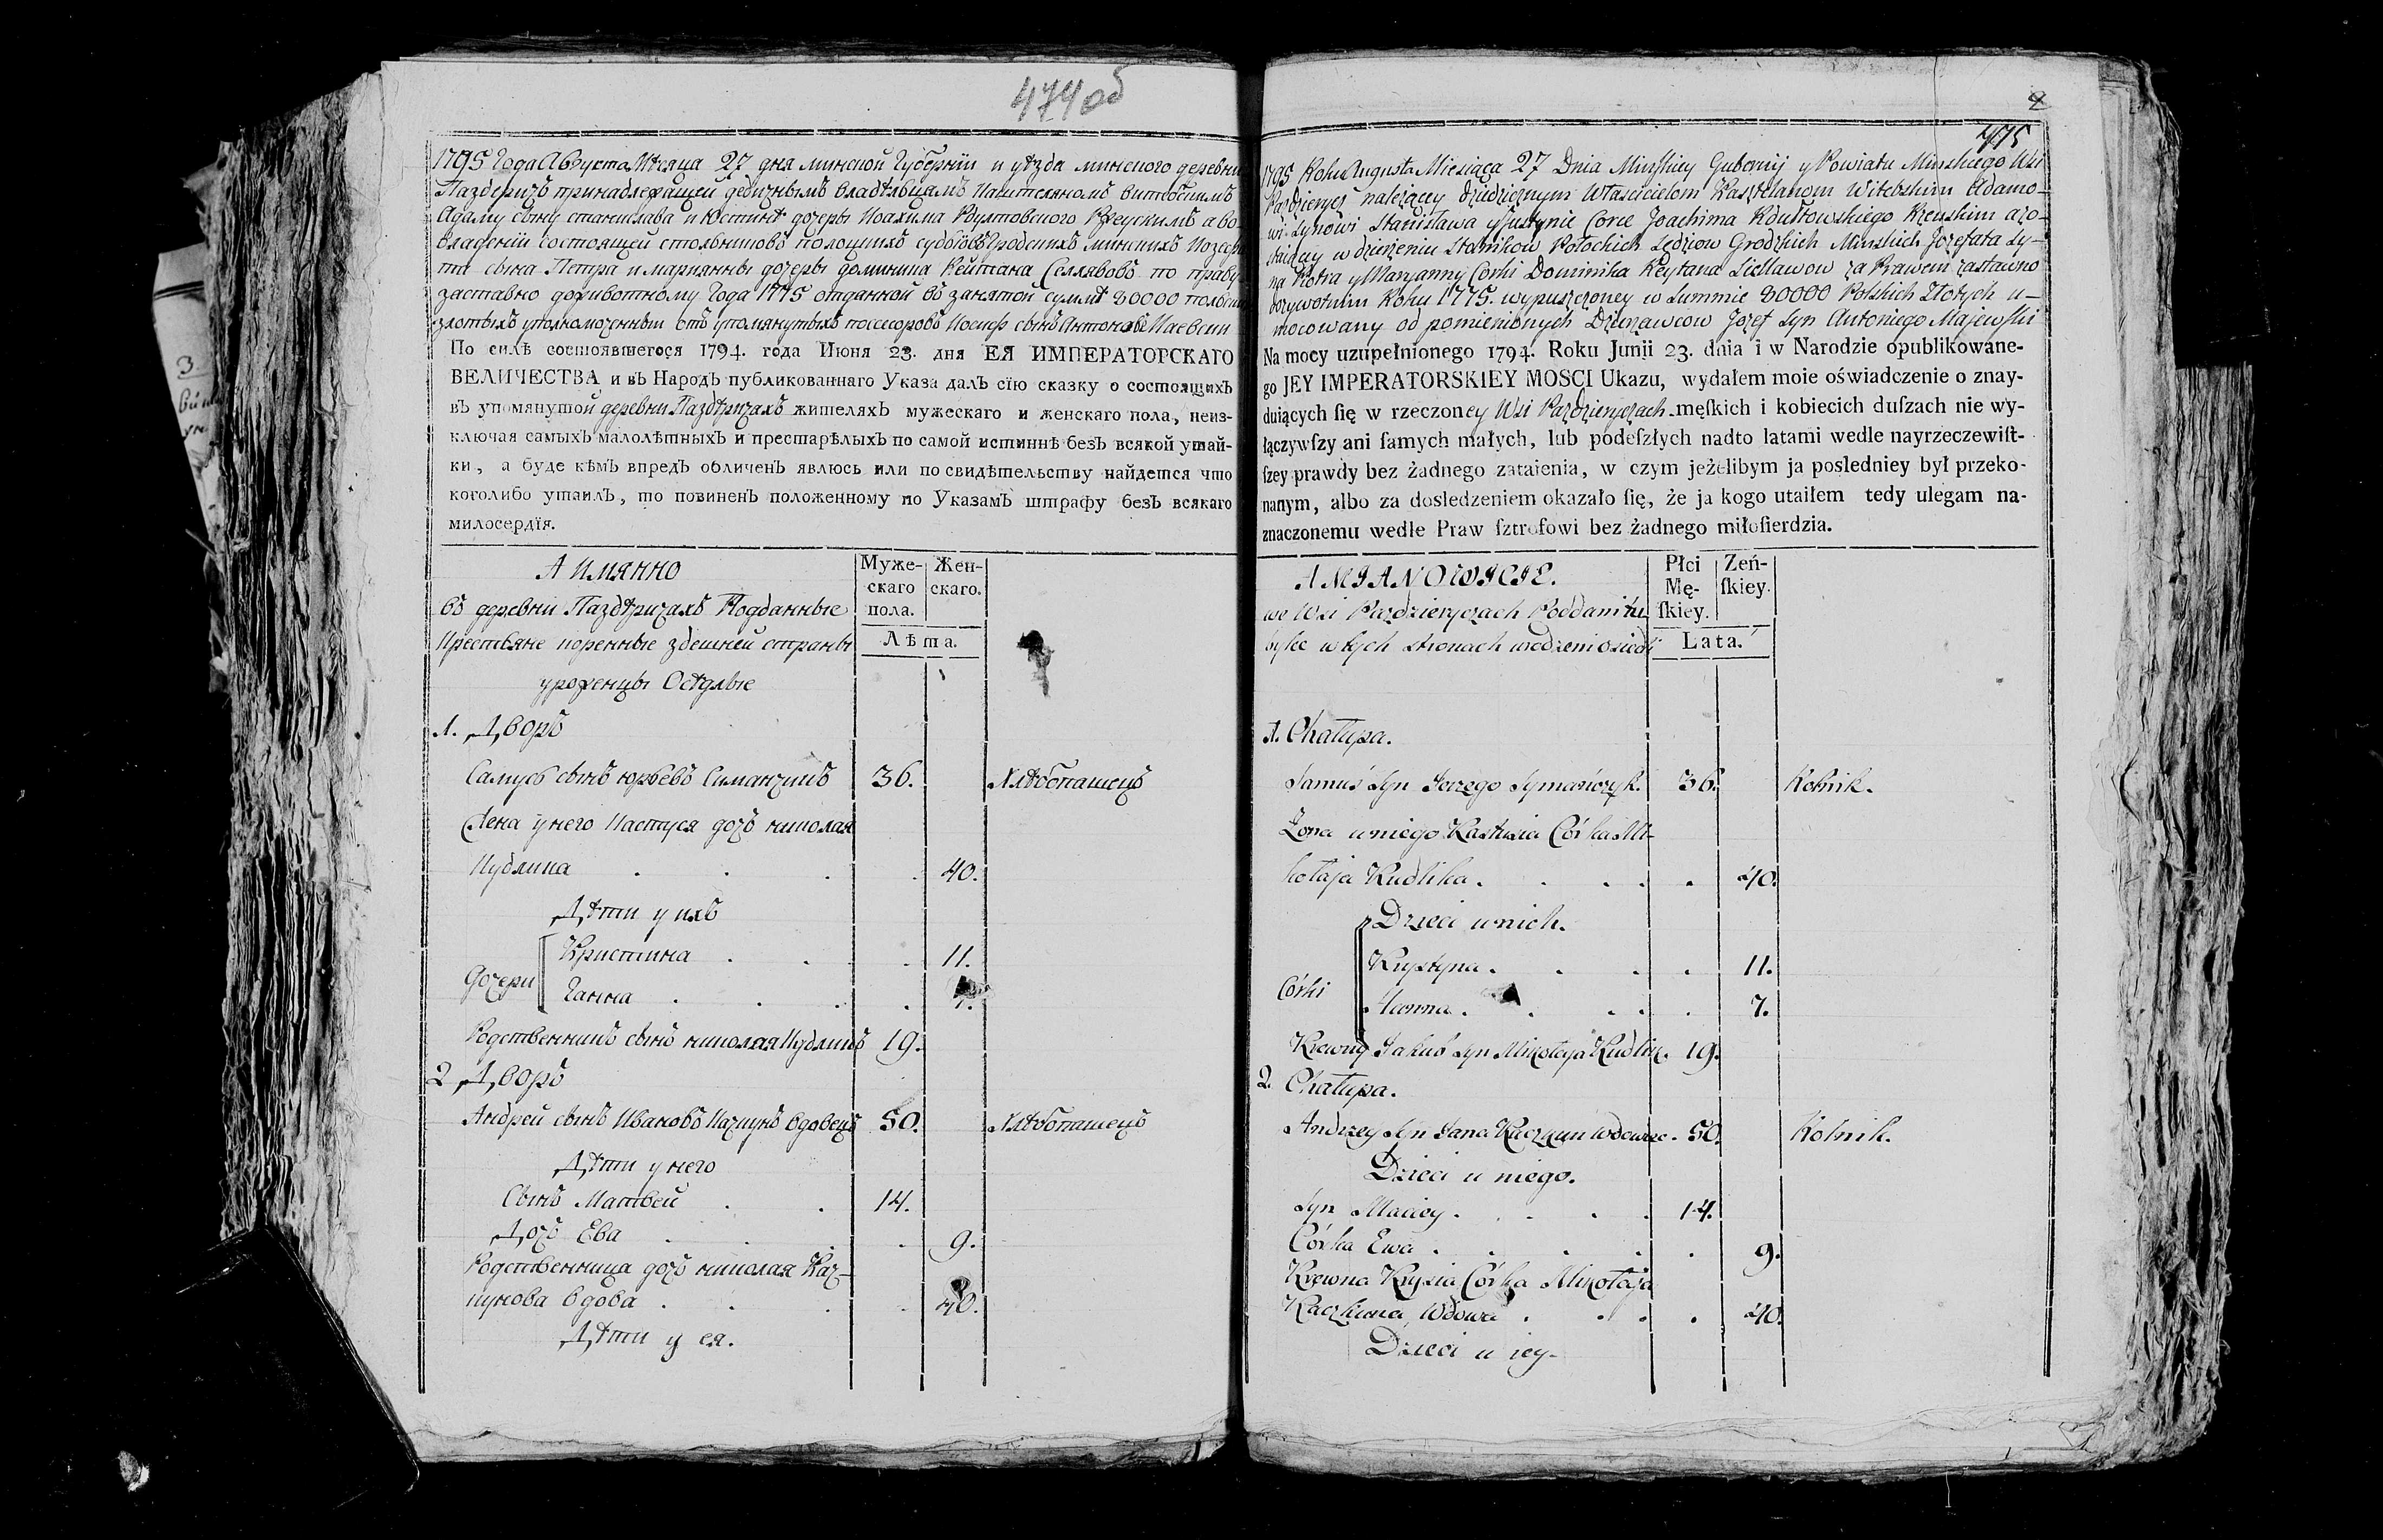 474об
1795 Года Августа Месяца 27 дня минской Губернїи и уѣзда минского деревни
Паздеричъ принадлежащей дедичнымъ владѣльцамъ Каштеляномъ витебскимъ
Адаму сыну станислава и Юстинѣ дочеры Иоахима Рдултовского Ржеускимъ а во
владенїи состоящей стольниковъ полоцкихъ судьювъ Гродскихъ минскихъ Иозефа
та сына Петра и марианны дочеры доминика Рейтана Селлявовъ по праву
заставно доживотному Года 1775 отданной въ занятой суммѣ 80000 польских
злотыхъ уполномоченный отъ упомянутыхъ поссесоровъ Иосиф сынъ Антоновъ Маевски
По силѣ состоявшегося 1794. года Июня 23. дня ЕЯ ИМПЕРАТОРСКАГО
ВЕЛИЧЕСТВА и въ Народъ публикованнаго Указа далъ сїю сказку о состоящихъ
въ упомянутой деревни Паздѣричахъ жителяхъ мужескаго и женскаго пола, неиз-
ключая самыхъ малолѣтныхъ и престарѣлыхъ по самой истиннѣ безъ всякой утай-
ки, а буде кѣмъ впредъ обличенъ явлюсь или по свидѣтельству найдется что
коголибо утаилъ, то повиненъ положенному по Указамъ штрафу безъ всякаго
милосердїя.
А имянно
Муже-
скаго
пола.
Жен-
скаго.
въ деревни Паздѣричахъ Подданные
Крестьяне коренные здешней страны
Лѣта.
уроженцы Осѣдлые
1. Дворъ
Самусь сынъ юрьевъ Симанчикъ 36. Хлѣбопашецъ
Жена у него Настуся дочь николая
Кудлика 40.
Дѣти у ихъ
Дочери
Кристина 11.
Ганна
Родственникъ сынъ николая Кудликъ 19.
2 Дворъ
Андрей сынъ Ивановъ Качкунъ вдовецъ 50. Хлѣбопашецъ
Дѣти у него
Сынъ Матвей 14.
Дочь Ева 9.
Родственница дочь николая Кач-
кунова вдова 40.
Дѣти у ея.
2
475
1795 Roku Augusta Miesiąca 27 Dnia Minskiey Gubernij y Powiatu Minskiego Wsi
Pazdzierycz należącey Dziedzicznym Właścicielom Kasztelanom Witebskim Adamo-
wi Synowi Stanisława y Justynie Corce Joachima Rdułtowskiego Rzeuskim a zo-
staiącey w dzierżeniu Stolnikow Połockich Sędziow Grodzkich Minskich Jozefata Sy-
na Piotra y Maryanny Corki Dominika Reytana Siellawow za Prawem zastawno
dożywotnim Roku 1775. wypuszczoney w Summie 80000 Polskich Złotych u-
mocowany od pomienionych Dzierzawcow Jozef Syn Antoniego Majewski
Na mocy uzupełnionego 1794. Roku Junii 23. dnia i w Narodzie opublikowane-
go JEY IMPERATORSKIEY MOSCI Ukazu, wydałem moie oświadczenie o znay-
duiących ſię w rzeczoney Wsi Pazdzieryczach męſkich i kobiecich duſzach nie wy-
łączywſzy ani ſamych małych, lub podeſzłych nadto latami wedle nayrzeczewiſt-
ſzey prawdy bez żadnego zataienia, w czym jeżelibym ja posledniey był przeko-
nanym, albo za dosledzeniem okazało ſię, że ja kogo utaiłem tedy ulegam na-
znaczonemu wedle Praw ſztrofowi bez żadnego miłoſierdzia.
AMIANOWICIE.
Płci
Mę-
ſkiey.
Zeń-
ſkiey.
we Wsi Pazdzieryczach Poddani tu
bylce w tych stronach urodzeni osiedli
Lata.
1. Chałupa.
Samuś Syn Jerzego Symańczyk. 36. Rolnik.
Żona u niego Nastusia Córka Mi-
kołaja Kudlika. 40.
Dzieci u nich.
Córki
Krystyna. 11.
Hanna. 7.
Krewny Jakub Syn Mikołaja Kudlik. 19.
2. Chałupa.
Andrzey Syn Jana Kaczkun Wdowiec. 50. Rolnik.
Dzieci u niego.
Syn Maciey. 14.
Córka Ewa. 9.
Krewna Krysia Córka Mikołaja
Kaczkuna, Wdowa. 40.
Dzieci u iey-